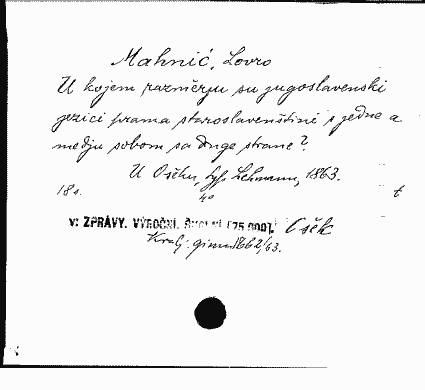 Mahnić, Lovro
U kojem razmĕrju su jugoslavenski
jezici prama staroslavenštini s jedne a
medju sobom sa druge strane?
U Osĕku, Lehmann, 1863.
18 s. 4° t
v: ZPRÁVY. VÝROČNÍ. ŠKOLNÍ [75.000]. Osĕk
Kralj. gimn. 1862/63.